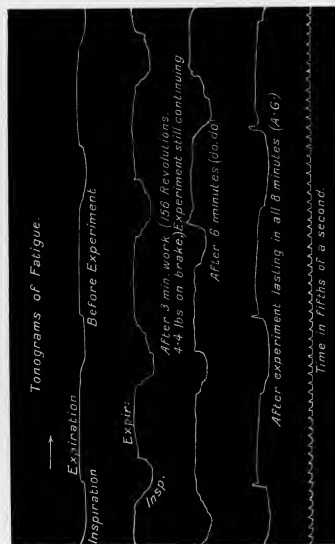 Tonograms of Fatigue.
Expiration
Inspiration
Before Experiment
Expir:
Insp.
After 3 min work (156 Revolutions.
4·4 lbs on brake) Experiment still continuing
After 6 minutes (do. do)
After experiment lasting in all 8 minutes (A·G·)
Time in fifths of a second.